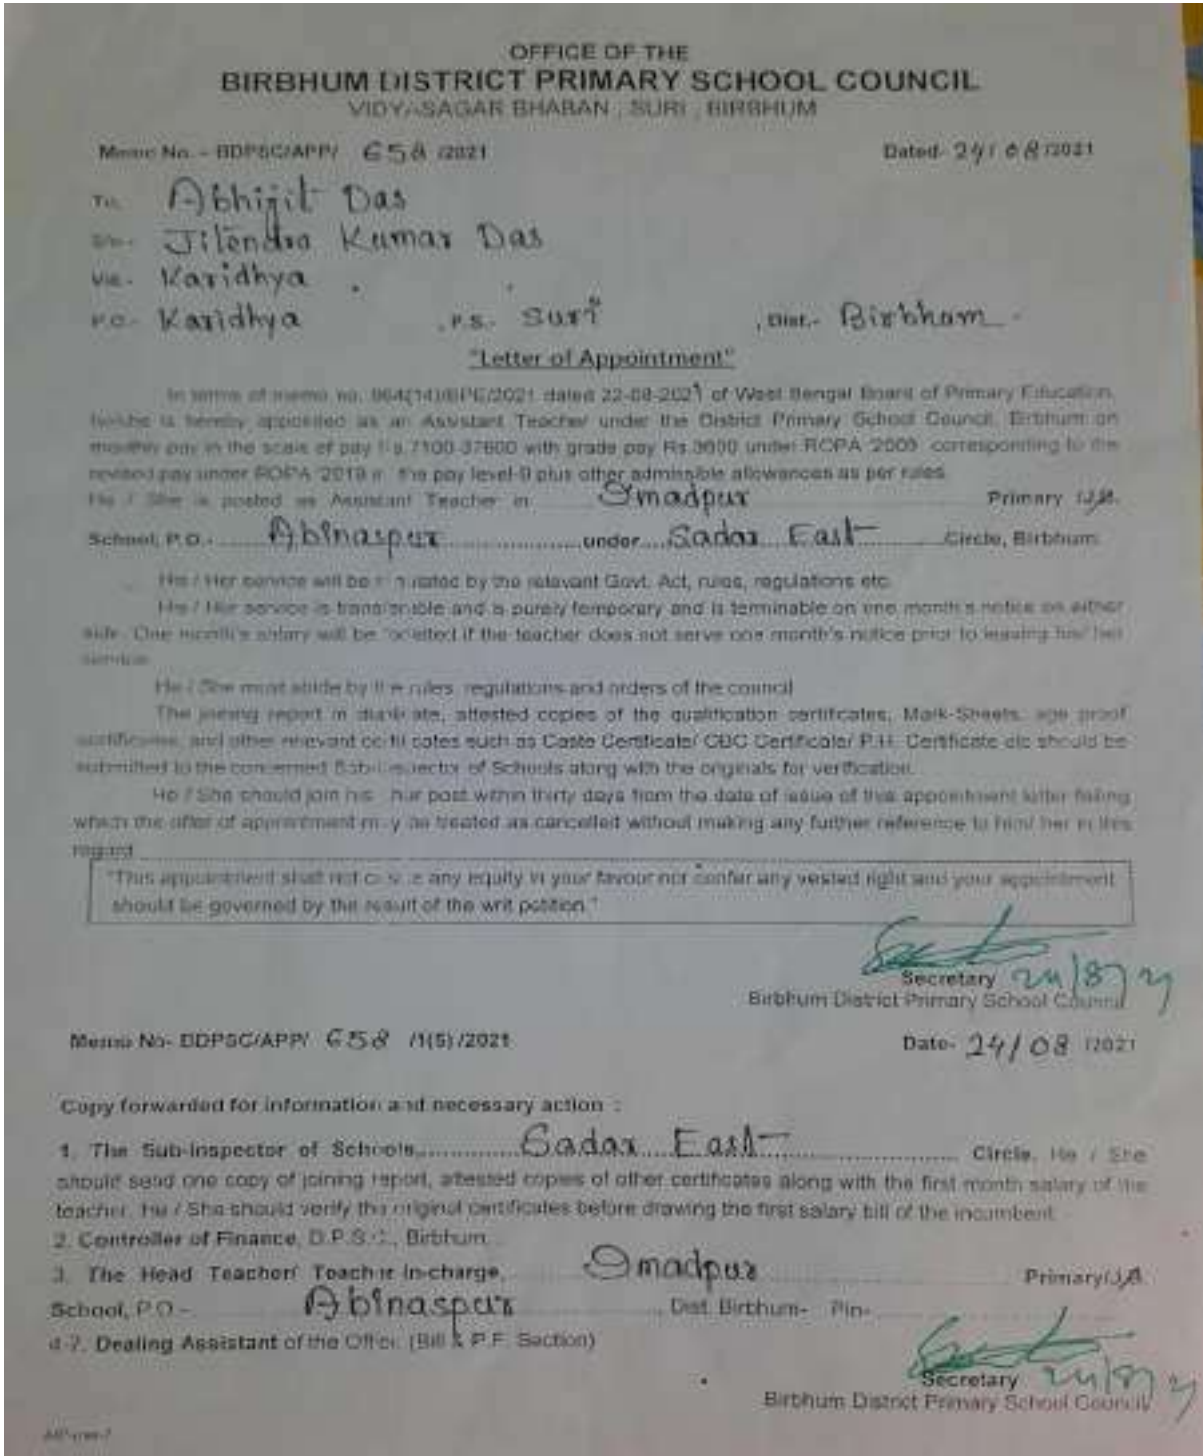 OFFICE OF THE
BIRBHUM DISTRICT PRIMARY SCHOOL COUNCIL
VIDYASAGAR BHABAN , SURI , BIRBHUM
Memo No. - BDPSC/APP/ 658 /2021 Dated- 24/08/2021
To, Abhijit Das
S/o- Jitendra Kumar Das
Vill.- Karidhya
P.O.- Karidhya , P.S.- Suri , Dist.- Birbham
"Letter of Appointment"
In terms of memo no. 964(14)/BPE/2021 dated 22-08-2021 of West Bengal Board of Primary Education,
he/she is hereby appointed as an Assistant Teacher under the District Primary School Council, Birbhum on
monthly pay in the scale of pay Rs.7100-37600 with grade pay Rs.3600 under ROPA '2009 corresponding to the
revised pay under ROPA '2019 in the pay level-9 plus other admissible allowances as per rules.
He / She is posted as Assistant Teacher in Imadpur Primary /J.B.
School, P.O.- Abinaspur under Sadar East Circle, Birbhum.
His / Her service will be regulated by the relevant Govt. Act, rules, regulations etc.
His / Her service is transferable and is purely temporary and is terminable on one month's notice on either
side. One month's salary will be forfeited if the teacher does not serve one month's notice prior to leaving his/ her
service.
He / She must abide by the rules, regulations and orders of the council
The joining report in duplicate, attested copies of the qualification certificates, Mark-Sheets, age proof
certificates, and other relevant certificates such as Caste Certificate/ OBC Certificate/ P.H. Certificate etc should be
submitted to the concerned Sub-Inspector of Schools along with the originals for verification.
He / She should join his / her post within thirty days from the date of issue of this appointment letter failing
which the offer of appointment may be treated as cancelled without making any further reference to him/ her in this
regard
"This appointment shall not create any equity in your favour nor confer any vested right and your appointment
should be governed by the result of the writ petition."
Secretary 24/8/21
Birbhum District Primary School Council
Memo No- BDPSC/APP/ 658 /1(5) /2021 Date- 24/08 /2021
Copy forwarded for information and necessary action :
1. The Sub-Inspector of Schools Sadar East Circle. He / She
should send one copy of joining report, attested copies of other certificates along with the first month salary of the
teacher. He / She should verify the original certificates before drawing the first salary bill of the incumbent.
2. Controller of Finance, D.P.S.C., Birbhum.
3. The Head Teacher/ Teacher In-charge, Imadpur Primary/J.B.
School, P.O - Abinaspur , Dist. Birbhum- Pin-
4-7. Dealing Assistant of the Office. (Bill & P.F. Section)
Secretary 24/8/21
Birbhum District Primary School Council